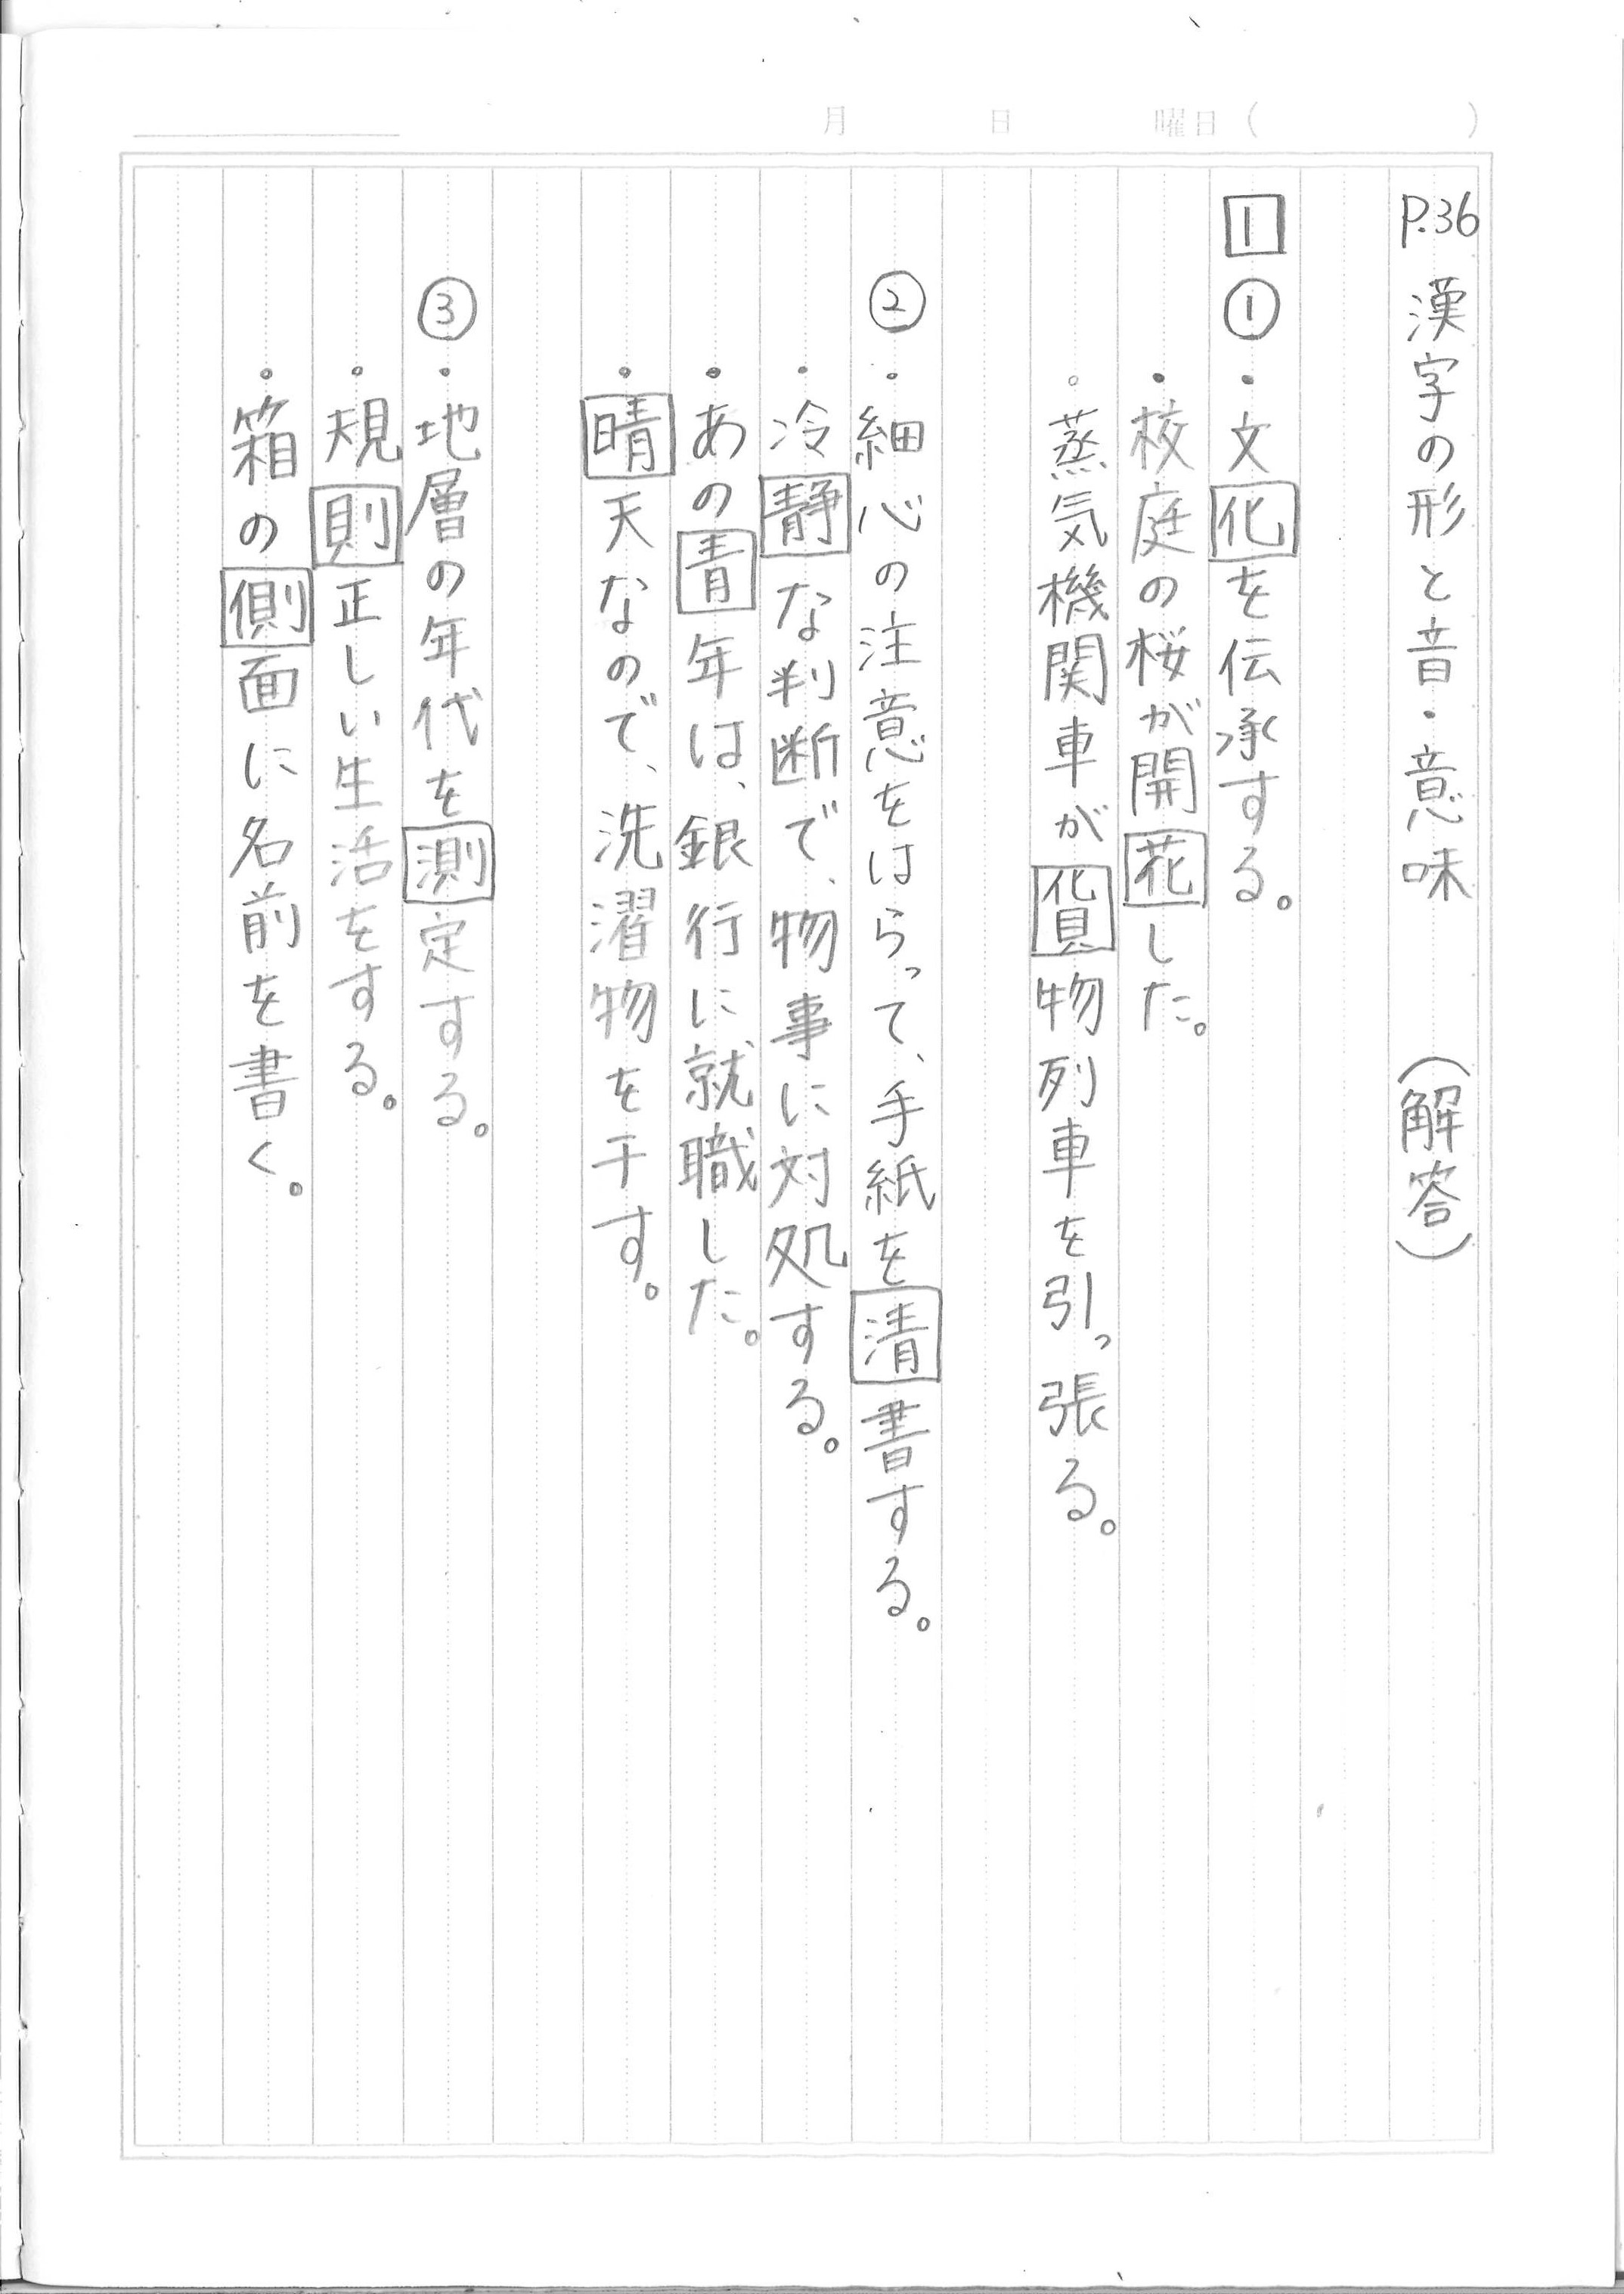 月 日 曜日( )
P.36 漢字の形と音・意味 (解答)
1 ① ・文化を伝承する。
・校庭の桜が開花した。
・蒸気機関車が貨物列車を引っ張る。
② ・細心の注意をはらって、手紙を清書する。
・冷静な判断で、物事に対処する。
・あの青年は、銀行に就職した。
・晴天なので、洗濯物を干す。
③ ・地層の年代を測定する。
・規則正しい生活をする。
・箱の側面に名前を書く。